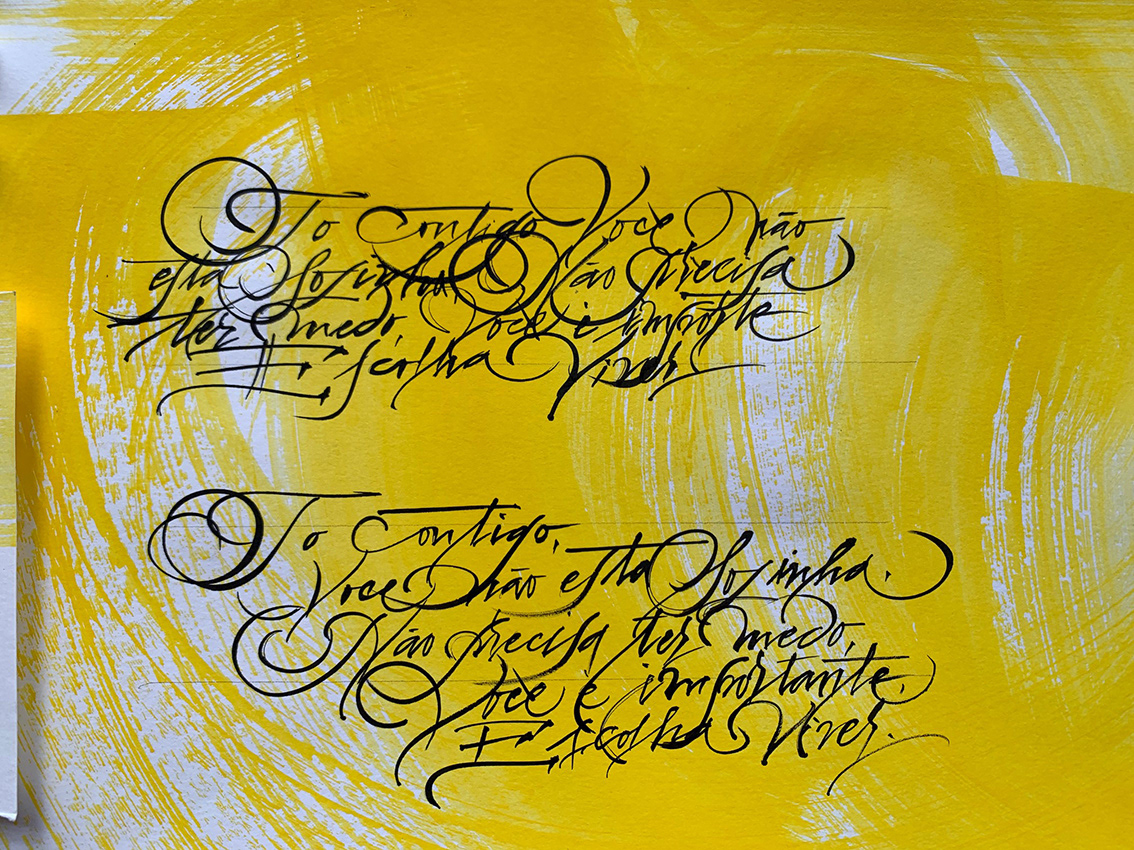 To Contigo Voce não
esta Sozinha, Não precisa
ter medo, Voce é importe
Escolha Viver
To Contigo,
Voce não esta Sozinha.
Não precisa ter medo,
Voce é importante.
Escolha Viver.